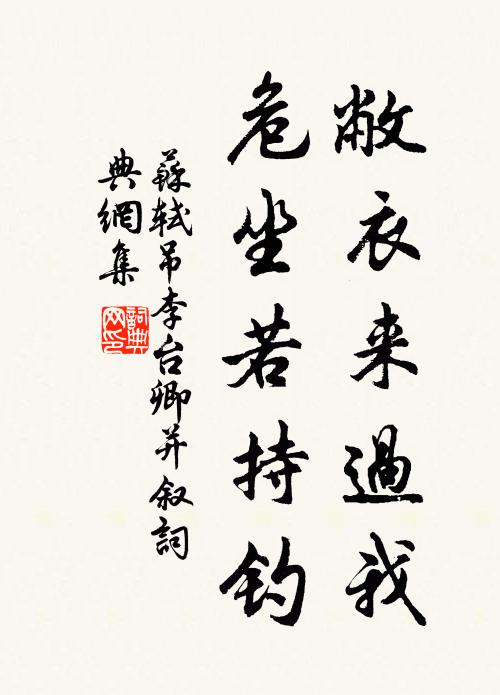 敝衣来過我
危坐若持钓
蘇軾吊李台卿并叙詞
典網集
詞典
网印